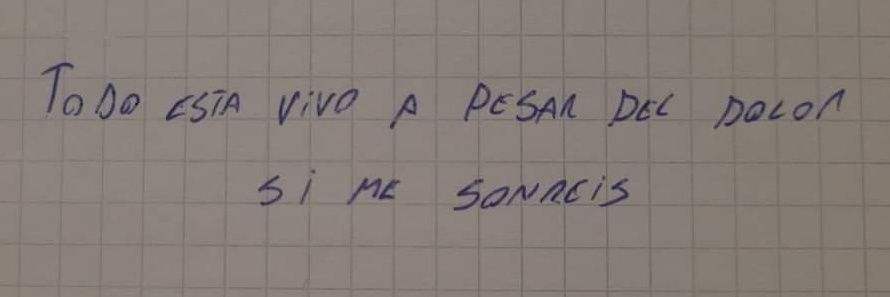 TODO ESTA VIVO A PESAR DEL DOLOR
SI ME SONREIS